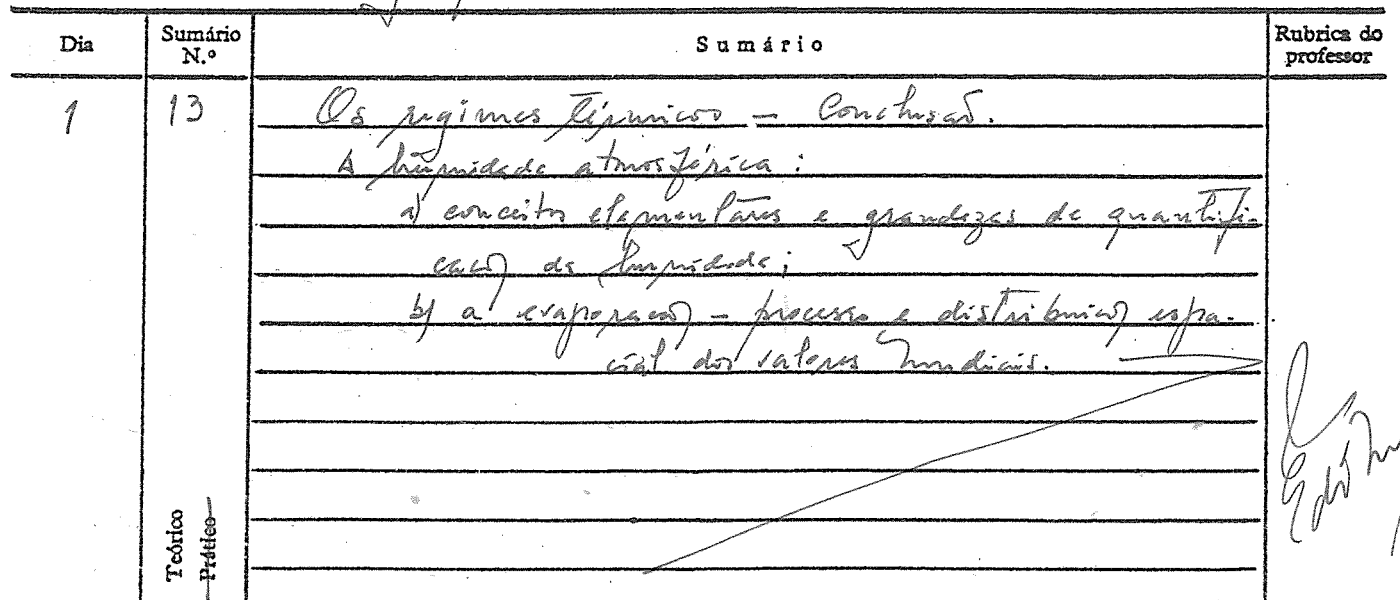 Dia
Sumário N.º
Sumário
Rubrica do professor
1
13
Os regimes térmicos — Conclusão.
A humidade atmosférica:
a) conceitos elementares e grandezas de quantifi-
cação da humidade;
b) a evaporação - processo e distribuição espa-
cial dos valores mundiais.
Teórico
Prático